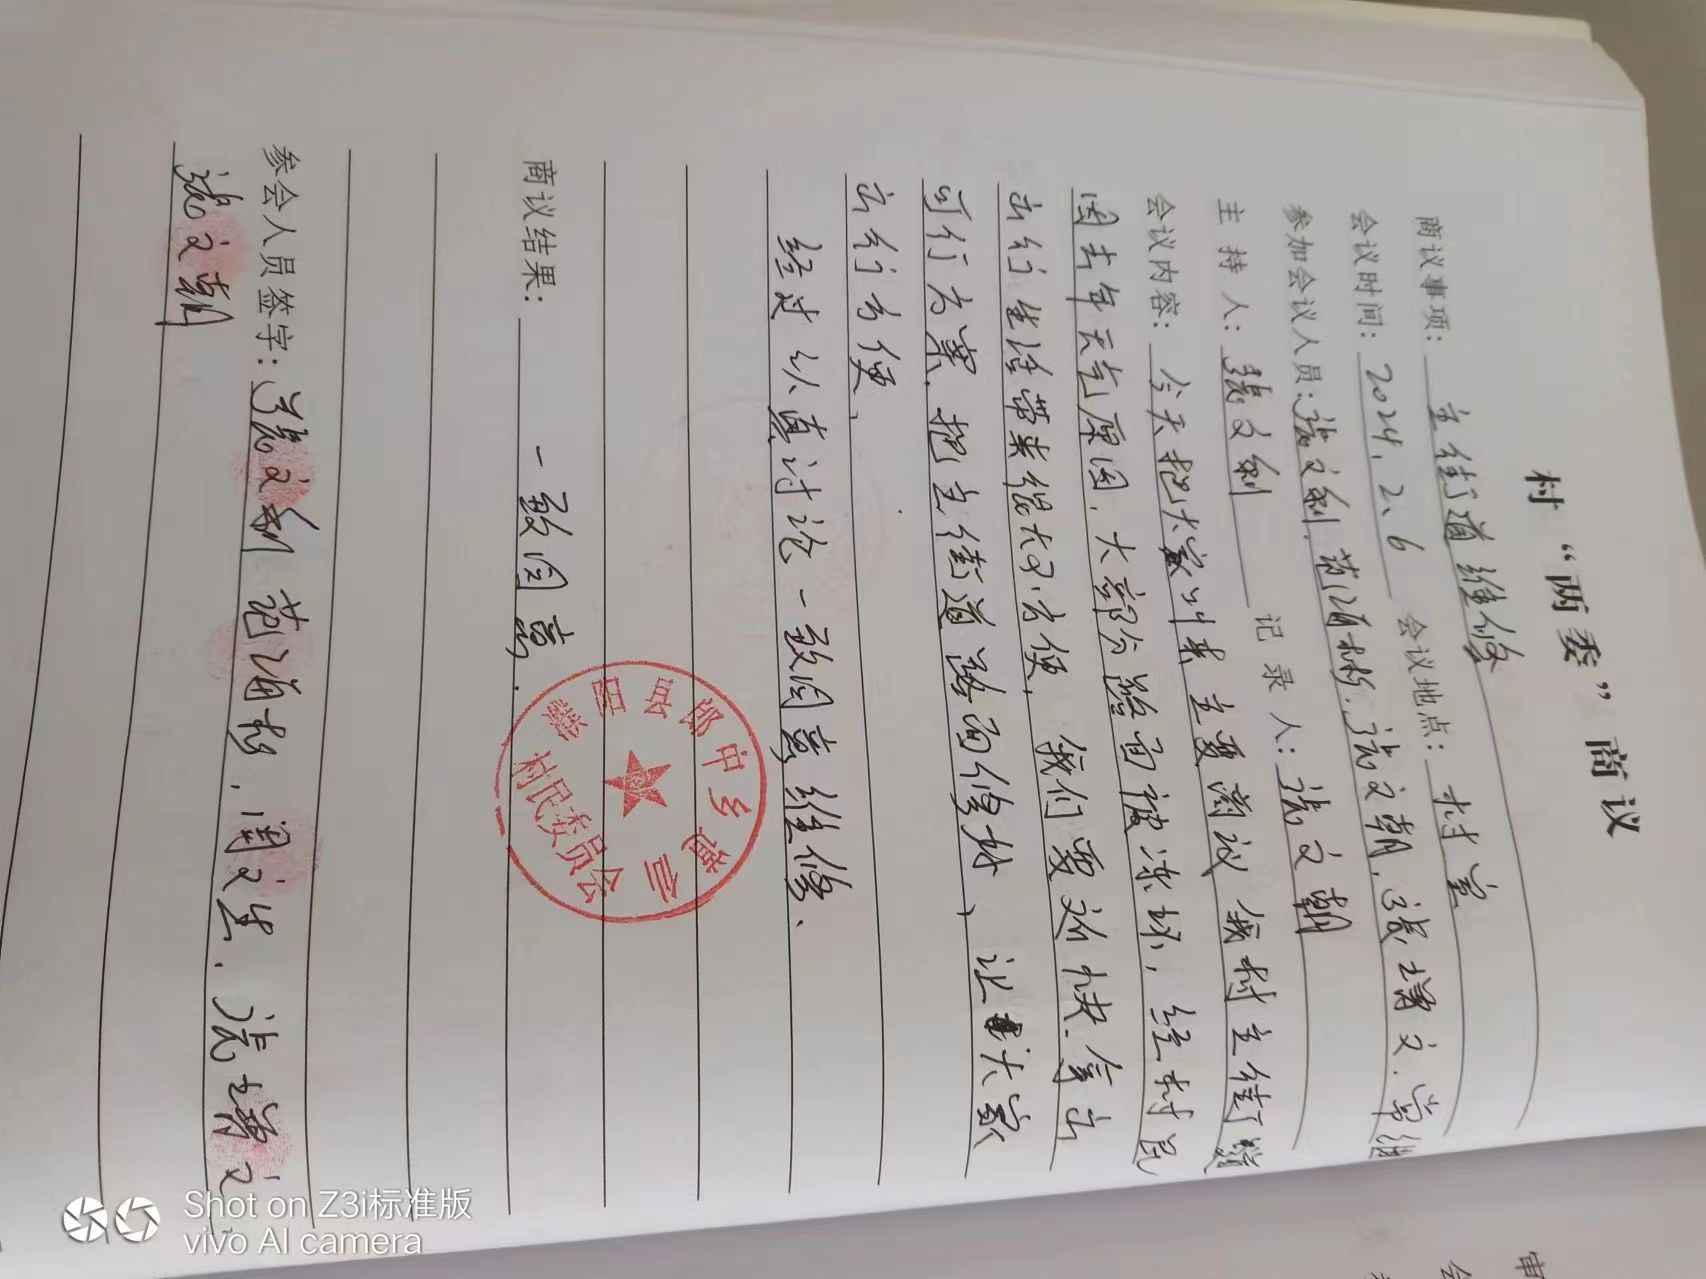 村“两委”商议
商议事项: 主街道维修
会议时间: 2024.2.6 会议地点: 村室
参加会议人员: 张文利.范海彬.张文朝.张增文.常继
主持人: 张文利 记录人: 张文朝
会议内容: 今天把大家叫来主要商议我村主街道
因去年天气原因,大部分路面被冻坏,经村民
出行生活带来很大不方便,我们要近快拿出
可行方案.把主街道路面修好、让大家
出行方便、
经过认真讨论一致同意维修.
濮阳县郎中乡道仙
村民委员会
商议结果: 一致同意.
参会人员签字: 张文利 范海彬.周文生.张增文
张文朝
审
会
Shot on Z3i标准版
vivo AI camera